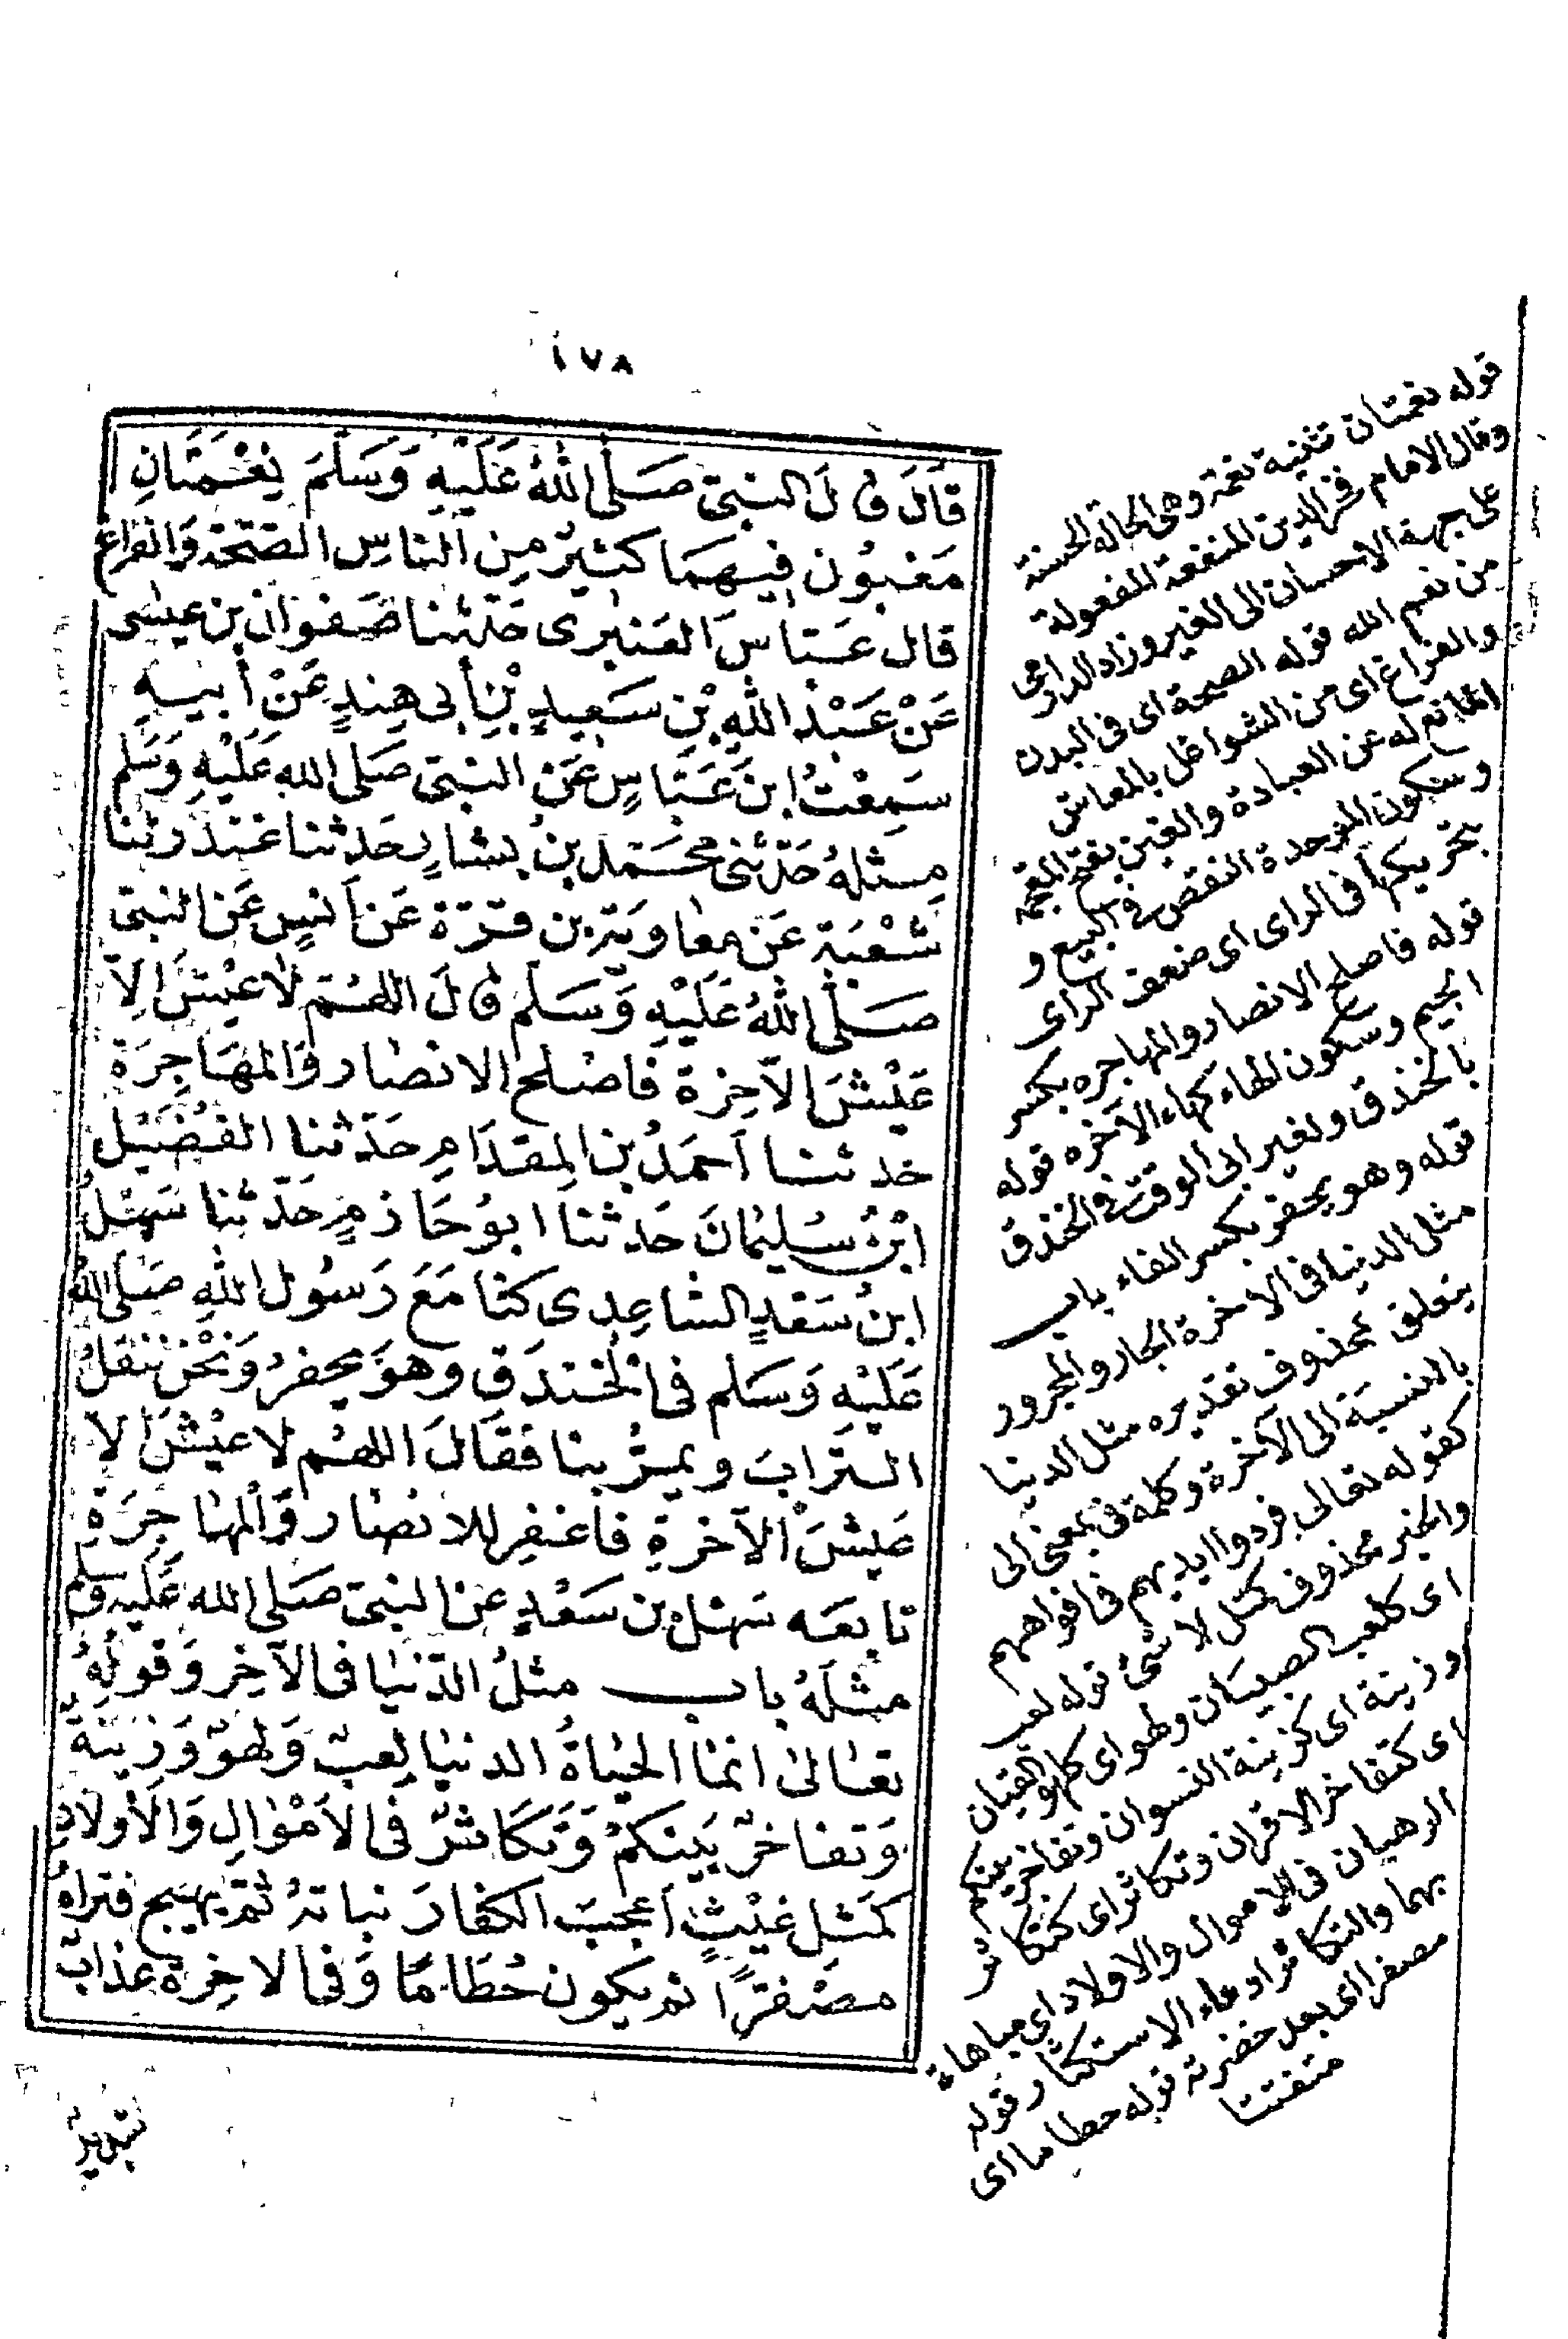 ١٧٨
قَالَ قالَ النبىّ صَلَّى اللهُ عَلَيْهِ وَسَلَّمَ نِعْمَتَانِ
مَغبُون فيهمَا كثيرٌ مِن الناسِ الصّحَّة وَالفَراغ
قال عَبّاسٌ العَنبرى حَدّثنا صَفوَان بن عيسٰى
عَنْ عَبْد اللهِ بْنِ سَعِيدٍ بْنِ أبى هِندٍ عَنْ أبيهِ
سَمِعْتُ ابنَ عَبّاسٍ عَن النبىّ صَلى الله عَلَيْهِ وَسَلَّم
مِثلهُ حَدّثنى محَمّد بن بشارٍ حَدثنا غندر ثنا
شُعْبَة عَن معٰاويَة بن قرّة عَن اَنسٍ عَن النبىّ
صَلَّى اللهُ عَلَيْهِ وَسَلَّم قالَ اللهُمّ لاعَيْشَ الاّ
عَيْشَ الآخِرَة فاصْلح الانصٰار وَالمهَاجِرَة
حدثنا اَحمَدُ بن المِقدَامِ حَدّثنا الفُضَيْل
ابْنُ سُليْمٰانَ حَدثنا ابوُحَازمٍ حَدّثنا سَهْلُ
ابنُ سَعْدٍ الساعِدى كنّا مَعَ رَسُول اللهِ صَلى اللهُ
عَلَيْهِ وَسَلم فى الخندَقِ وهوَ يحفرُ وَنَحْن ننقلُ
الترَابَ ويمرُّ بنا فقَالَ اللهُم لاعَيْشَ الاّ
عَيْشَ الآخرةِ فاغفِر للانصٰار وَالمهٰاجِرَةِ
تابعَه سَهْل بن سَعْدٍ عن النبىّ صَلى الله عَليه وَسلم
مثلهُ باب مثلُ الدّنيٰا فى الآخِر وَقولِهُ
تعٰالىٰ انمٰا الحيٰاةُ الدنيٰا لِعبٌ وَلهوٌ وَزِينَةٌ
وَتفاخرٌ بَينكمْ وَتكَاثرٌ فى الاَمْوٰالِ وَالأولادِ
كمَثل غيْثٍ اَعجبَ الكفارَ نباتهُ ثمّ يهيج فتراهُ
مصْفرًّا ثم يكون حُطَامًا وَفى الاخِرَة عذابٌ
شديدٌ
قوله نعمتان تثنية نعمة وهى الحالة الحسنة
وقال الامام فخرالدين المنفعة المفعولة
على جهة الاحسان الى الغير وزاد الدارمى
من نعم الله قوله الصحة اى فى البدن
والفراغ اى من الشواغل بالمعاش
المانع له عن العبادة والغبن بفتح المعجمة
وسكون الموحدة النقص فى البيع و
بتحريكها فى الراى اى ضعف الراى
قوله فاصلح الانصار والمهاجره بكسر
الجيم وسكون الهاء كهاء الآخره قوله
بالخندق ولغير ابى الوقت فى الخندق
قوله وهو يحفر بكسر الفاء باب
مثل الدنيا فى الاخرة الجار والمجرور
يتعلق بمحذوف تقديره مثل الدنيا
بالنسبة الى الآخرة وكلمة فى بمعنى الى
كقوله تعالى فردوا ايديهم فى افواههم
والخبر محذوف كمثل لا شئ قوله لعب
اى كلعب الصبيان ولهو اى كلهو الفتيان
وزينة اى كزينة النسوان وتفاخر بينكم
اى كتفاخر الاقران وتكاثر اى كتكاثر
الدهيان فى الاموال والاولاد اى مباهاة
بهما والتكاثر ادعاء الاستكثار قوله
مصفرا اى بعد خضرته قوله حطاما اى
متفتتا